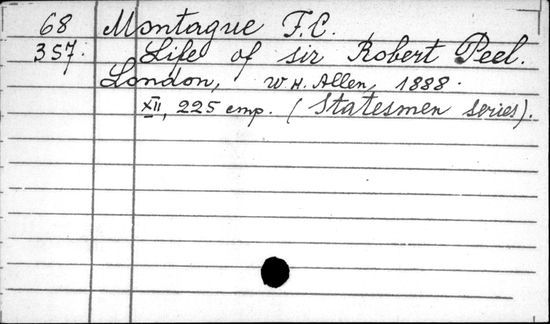 68 Montague F.C.
357. Life of sir Robert Peel.
London, W H. Allen, 1888.
XII, 225 emp. (Statesmen series).